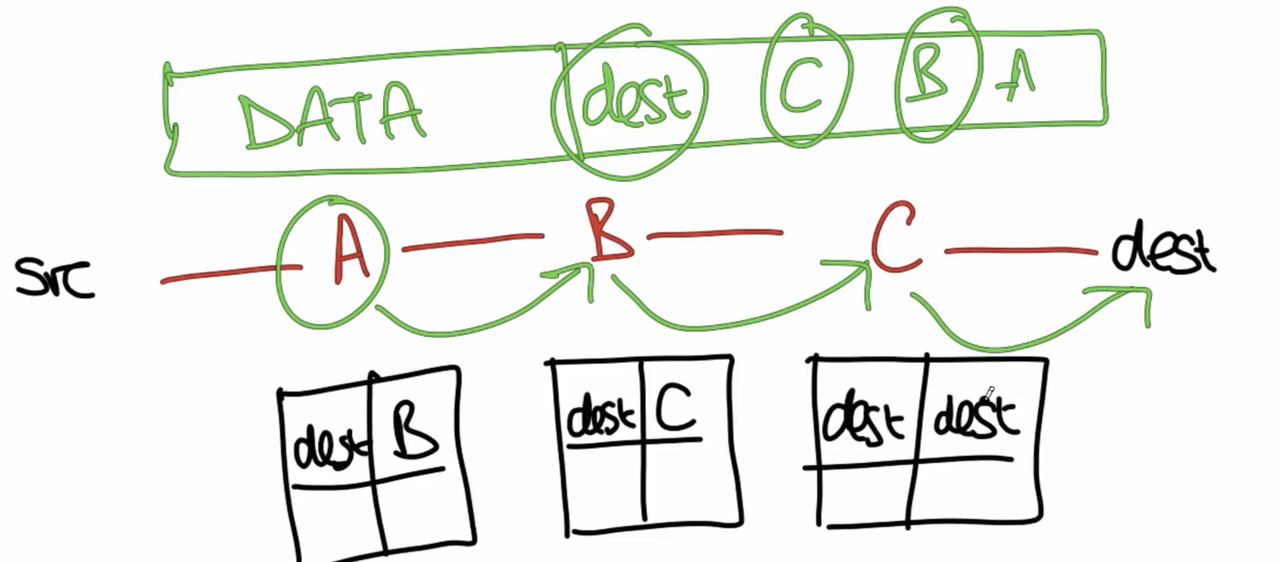 DATA dest C B A
src A B C dest
dest B dest C dest dest